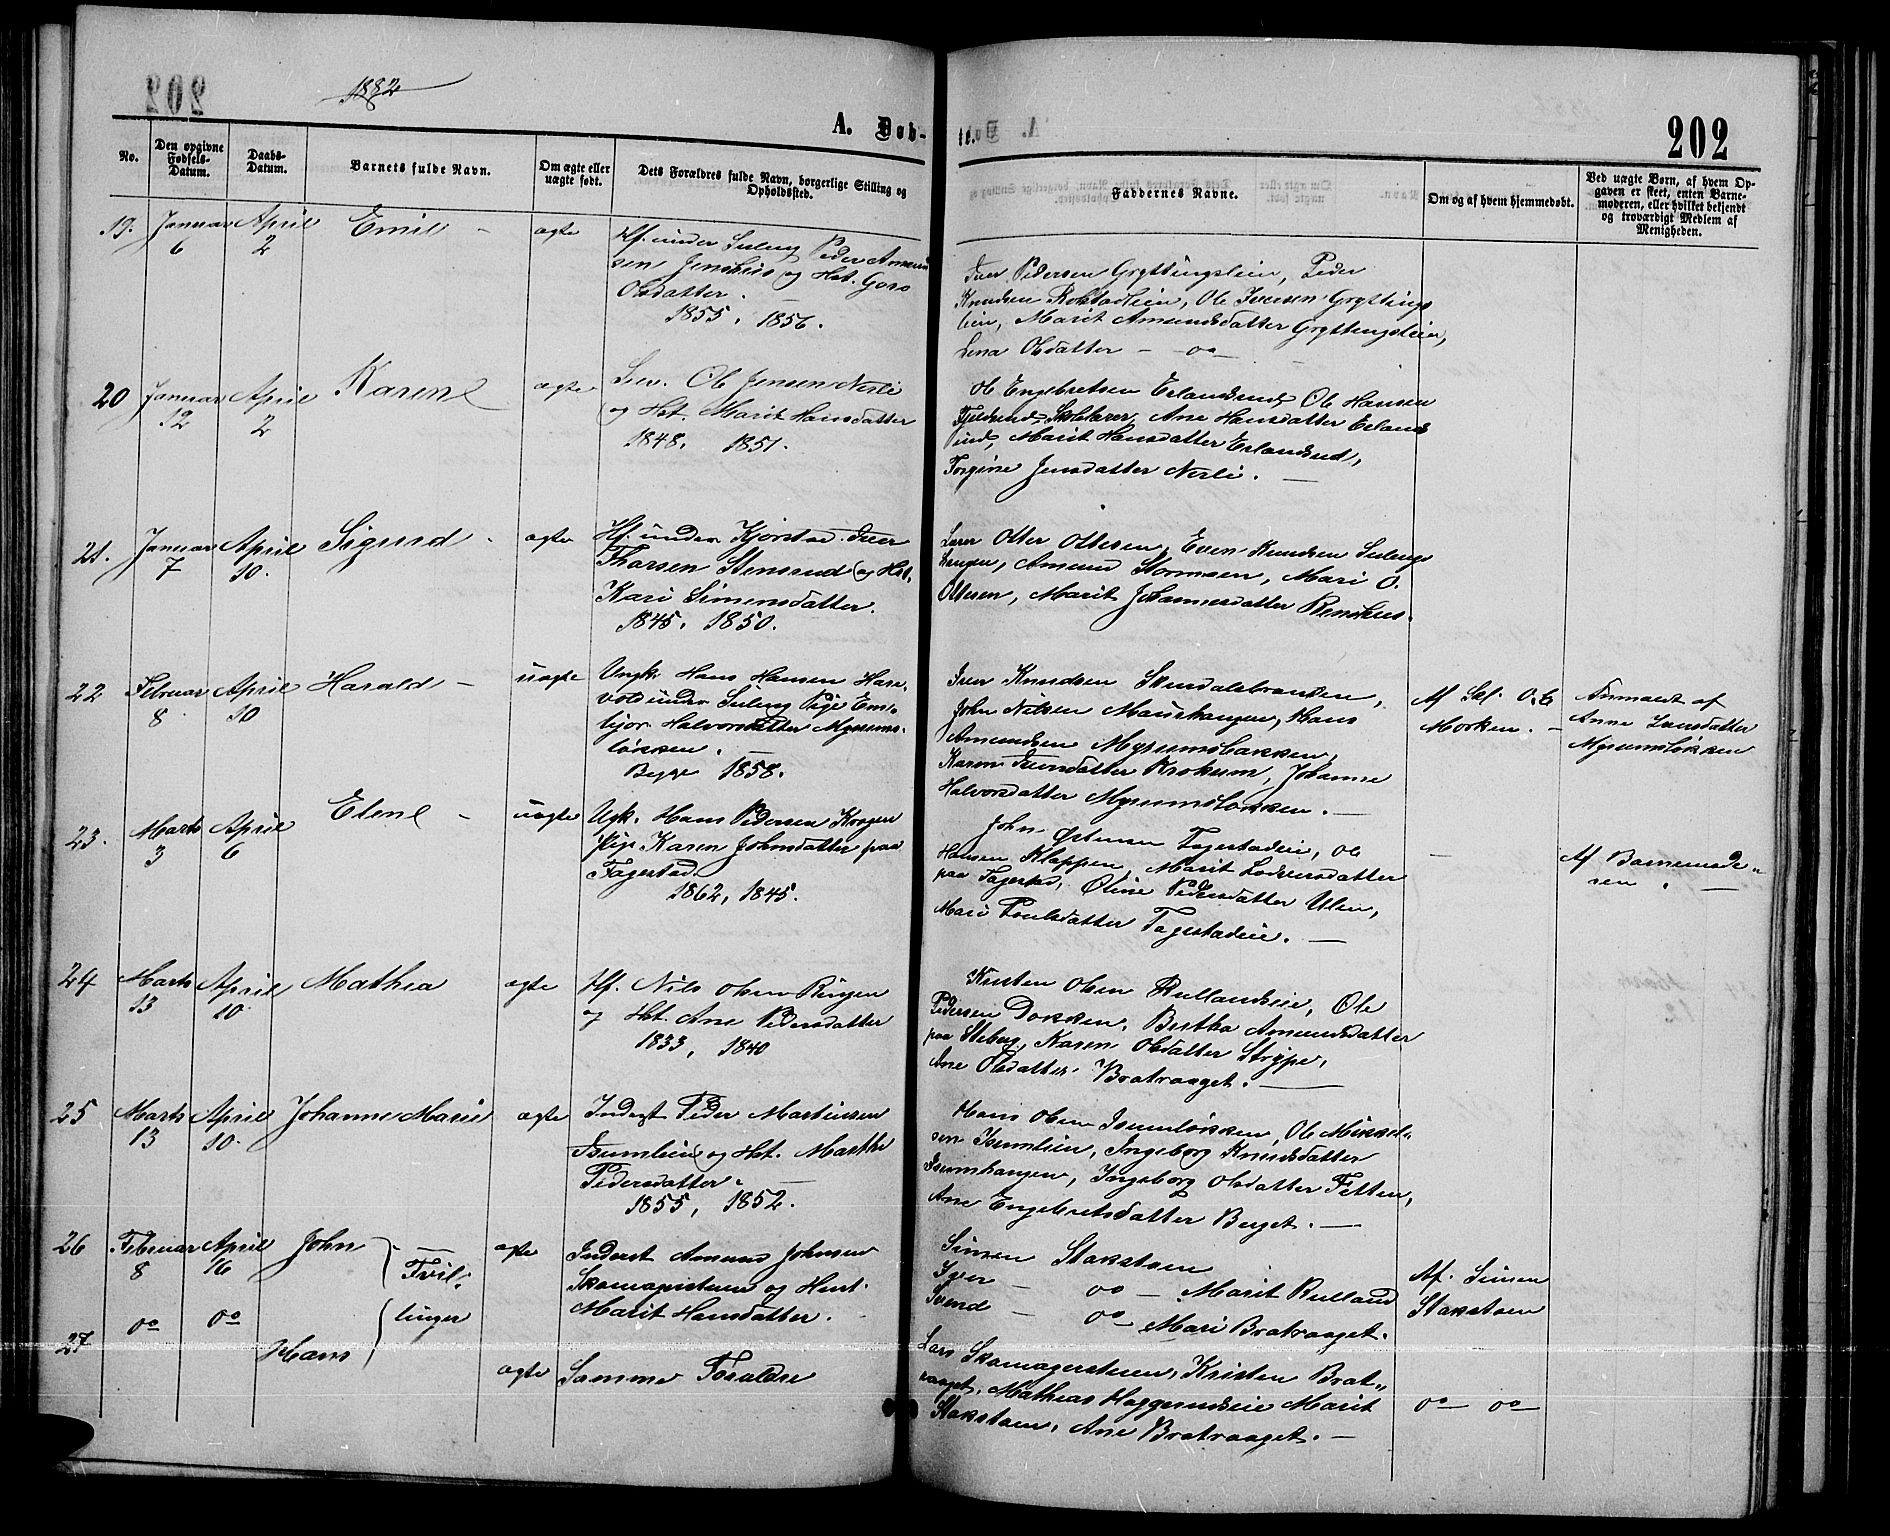 1882
202
A. Døb-
te.
No.
Den opgivne Fødsels-Datum.
Daabs-Datum.
Barnets fulde Navn.
Om ægte eller uægte født.
Dets Forældres fulde Navn, borgerlige Stilling og Opholdssted.
Faddernes Navne.
Om og af hvem hjemmedøbt.
Ved uægte Børn, af hvem Opgaven er skeet, enten Barnemoderen, eller hvilket bekjendt og troværdigt Medlem af Menigheden.
19. Januar 6 April 2 Emil - ægte
Hf. under Suleng Peder Amund
sen Jenshus og Hst. Goro
Olsdatter. -
1855, 1856.
Iver Pedersen Gryttingslien, Peder
Knudsen Rokstadlien, Ole Iversen Gryttings
lien, Marit Amundsdatter Gryttingslien,
Lena Olsdatter - oo -
20 Januar 12 April 2 Karen ægte
Lev. Ole Jensen Nerli
og Hst. Marit Hansdatter
1848, 1851.
Ole Engebretsen Erlandsend, Ole Hansen
Fjeldsend, Skolelærer, Ane Hansdatter Erlands
end, Marit Hansdatter Erlandsend,
Torgine Jensdatter Nerli. -
21. Januar 7 April 10. Sigurd - ægte
Hf. under Kjorstad Iver
Tharsen Stensend og Hst.
Kari Simensdatter.
1845, 1850.
Lærer Otter Ottesen, Even Knudsen Sulengs
haugen, Amund Stormoen, Mari O.
Ottesen, Marit Johannesdatter Renshus.
22 Februar 8 April 10 Harald - uægte
Ungk. Hans Hansen Hare-
vold under Suleng Pige Em-
bjør Halvorsdatter Mysums-
løkken. -
Begge 1858.
Iver Knudsen Skurdalsbranden,
John Nilsen Maurhaugen, Hans
Amundsen Mysumsbakken,
Karen Iversdatter Krokum, Johanne
Halvorsdatter Mysumsløkken. -
Af Skl. O. E.
Morken. -
Anmeldt af
Anne Larsdatter
Mysumsløkken
23. Marts 3 April 6 Elene - uægte
Ugk. Hans Pedersen Krogen
Pige Karen Johnsdatter paa
Fagerstad.
1862, 1845.
John Østensen Fagerstadeie, Ole
Hansen Klappen, Marit Lodversdatter
paa Fagerstad, Oline Pedersdatter Ulen,
Mari Poulsdatter Fagerstadeie. -
-
Af Barnemode-
ren. -
24 Marts 13 April 10 Mathea ægte
Hf. Nils Olsen Ringen
og Hst. Ane Pedersdatter
1833, 1840
Kristen Olsen Rullandseie, Ole
Pedersen Dokken, Bertha Amundsdatter
paa Steberg, Karen Olsdatter Strype,
Ane Olsdatter Bratvaaget. -
25 Marts 13 April 10. Johanne Marie ægte
Inderst Peder Martinsen
Isumlien og Hst. Marthe
Pedersdatter. -
1855, 1852.
Hans Olsen Isumløkken, Ole Mikkel-
sen Isumlien, Ingeborg Knudsdatter
Isumhaugen, Ingeborg Olsdatter Fetten,
Ane Engebretsdatter Berget. -
26 Februar 8 April 16 John ægte
Tvil-
linger
Inderst Amund Johnsen
Skomagerstuen og Hust.
Marit Hansdatter.
Simen Stakstoen
Iver - oo - Marit Rulland
Svend - oo - Mari Bratvaaget.
Af Simen
Stakstoen
27 oo oo Hans ægte
Samme Forældre
Lars Skomagerstuen, Kristen Brat-
vaaget, Mathias Haggerudseie Marit
Stakstoen, Ane Bratvaaget. -
oo - oo -